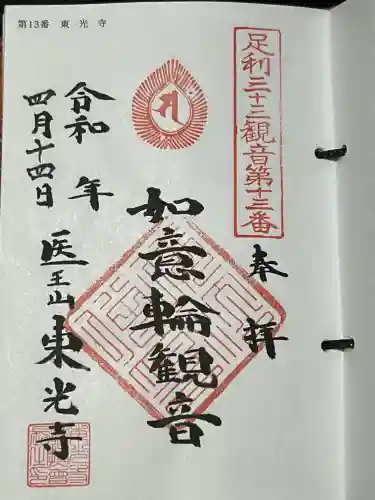 第13番 東光寺
足利三十三観音第十三番
奉拝
如意輪観音
令和 年
四月十四日
医王山 東光寺